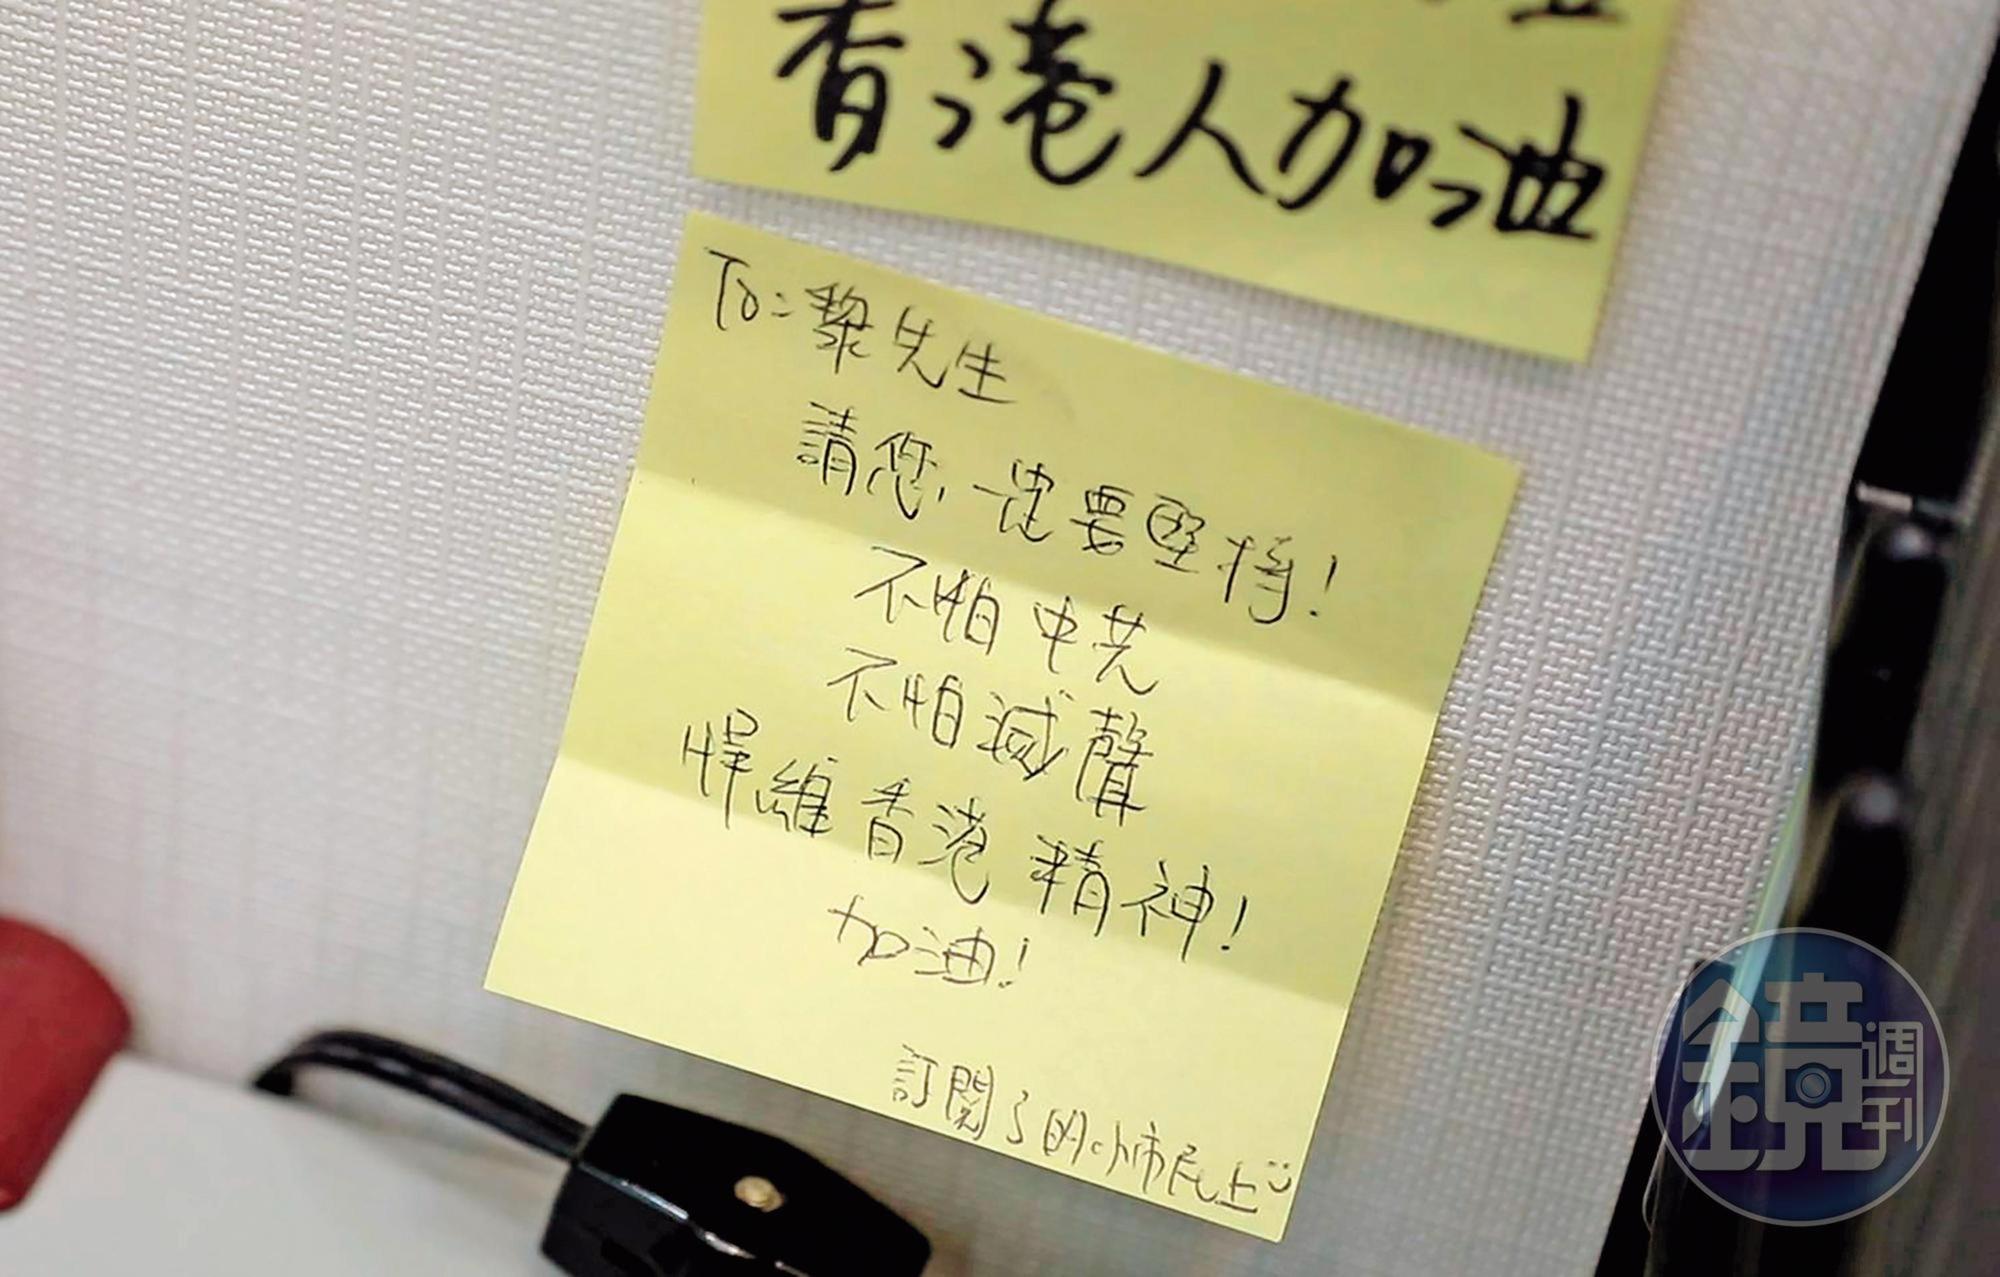 香港人加油
To:黎先生
請您一定要堅持!
不怕中共
不怕滅聲
悍維香港精神!
加油!
訂閱了的小市民上
鏡週刊